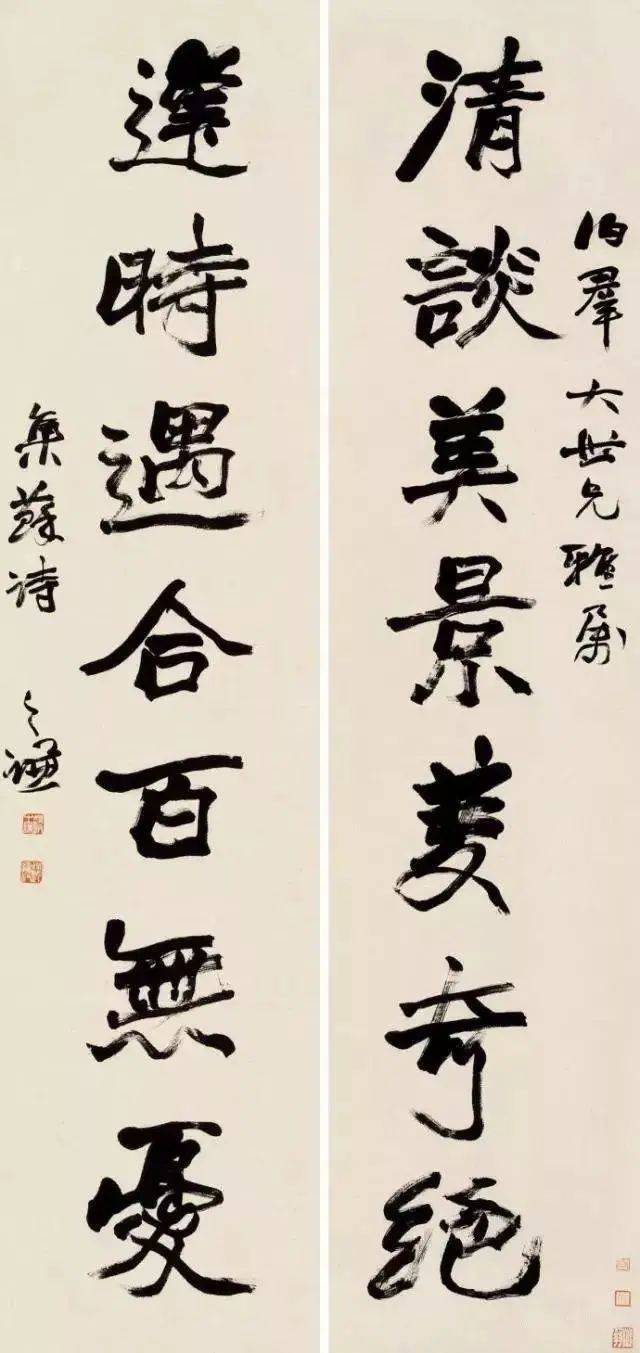 伯羣大世兄雅屬
清談美景雙奇絕
逢時遇合百無憂
集蘇詩 之謙